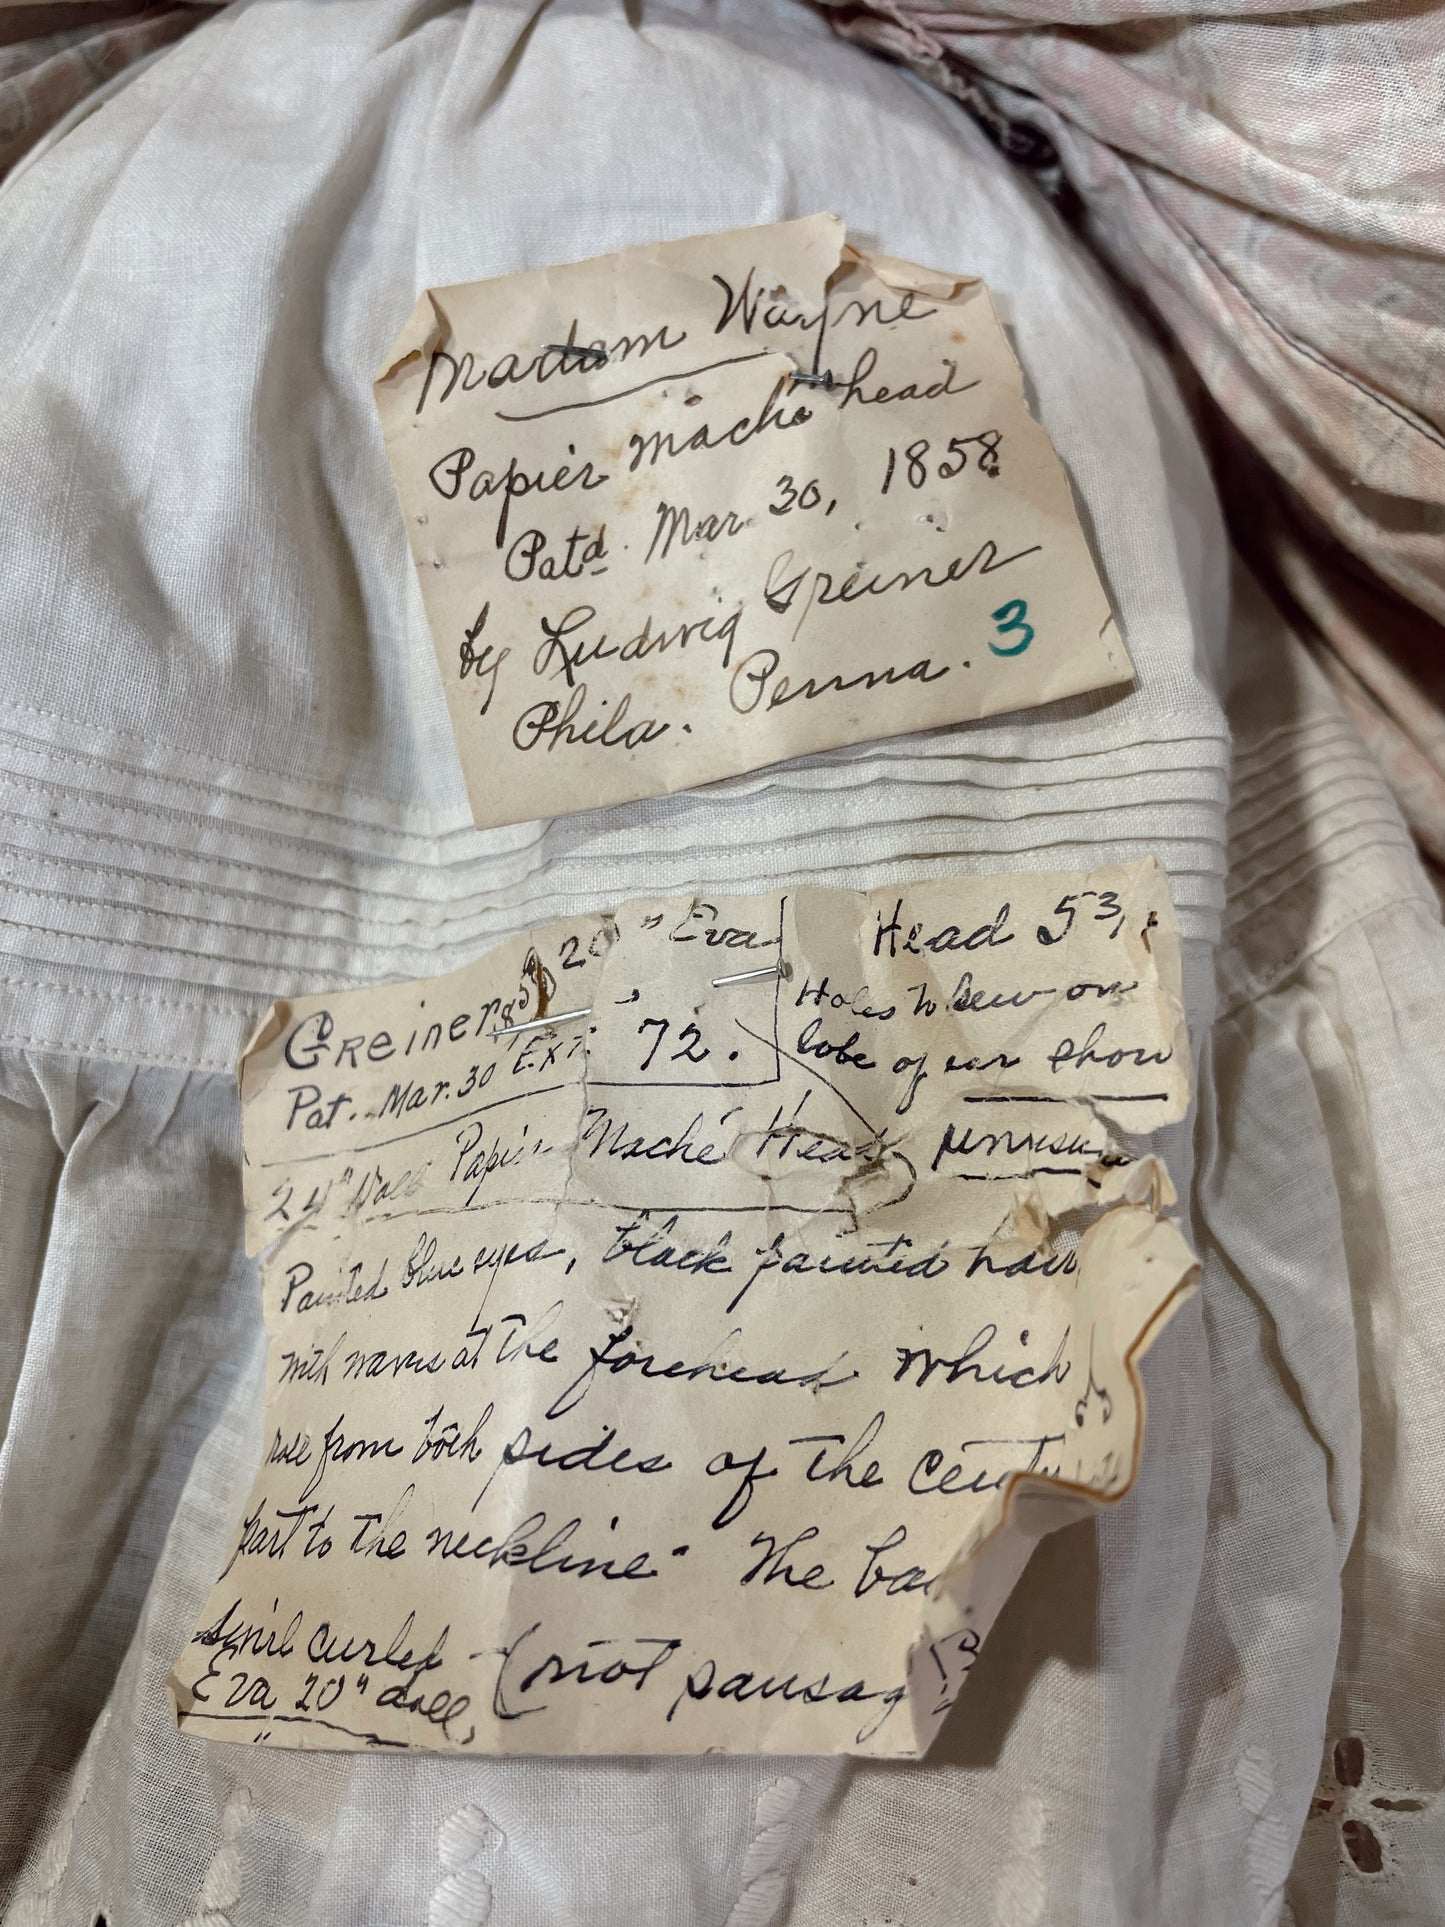 Madam Wayne
Papier Maché head
Patd. Mar. 30, 1858
by Ludwig Greiner
Phila. Penna. 3
20" Eva
Head 5 3/
Greiner '58
Holes to sew on
72.
Pat. Mar. 30 Ext.
lobe of ear show
24" Papier Maché Head
Painted blue eyes, black painted hair
with waves at the forehead which
from both sides of the
part to the neckline. The
curled - (not
Eva 20" doll,